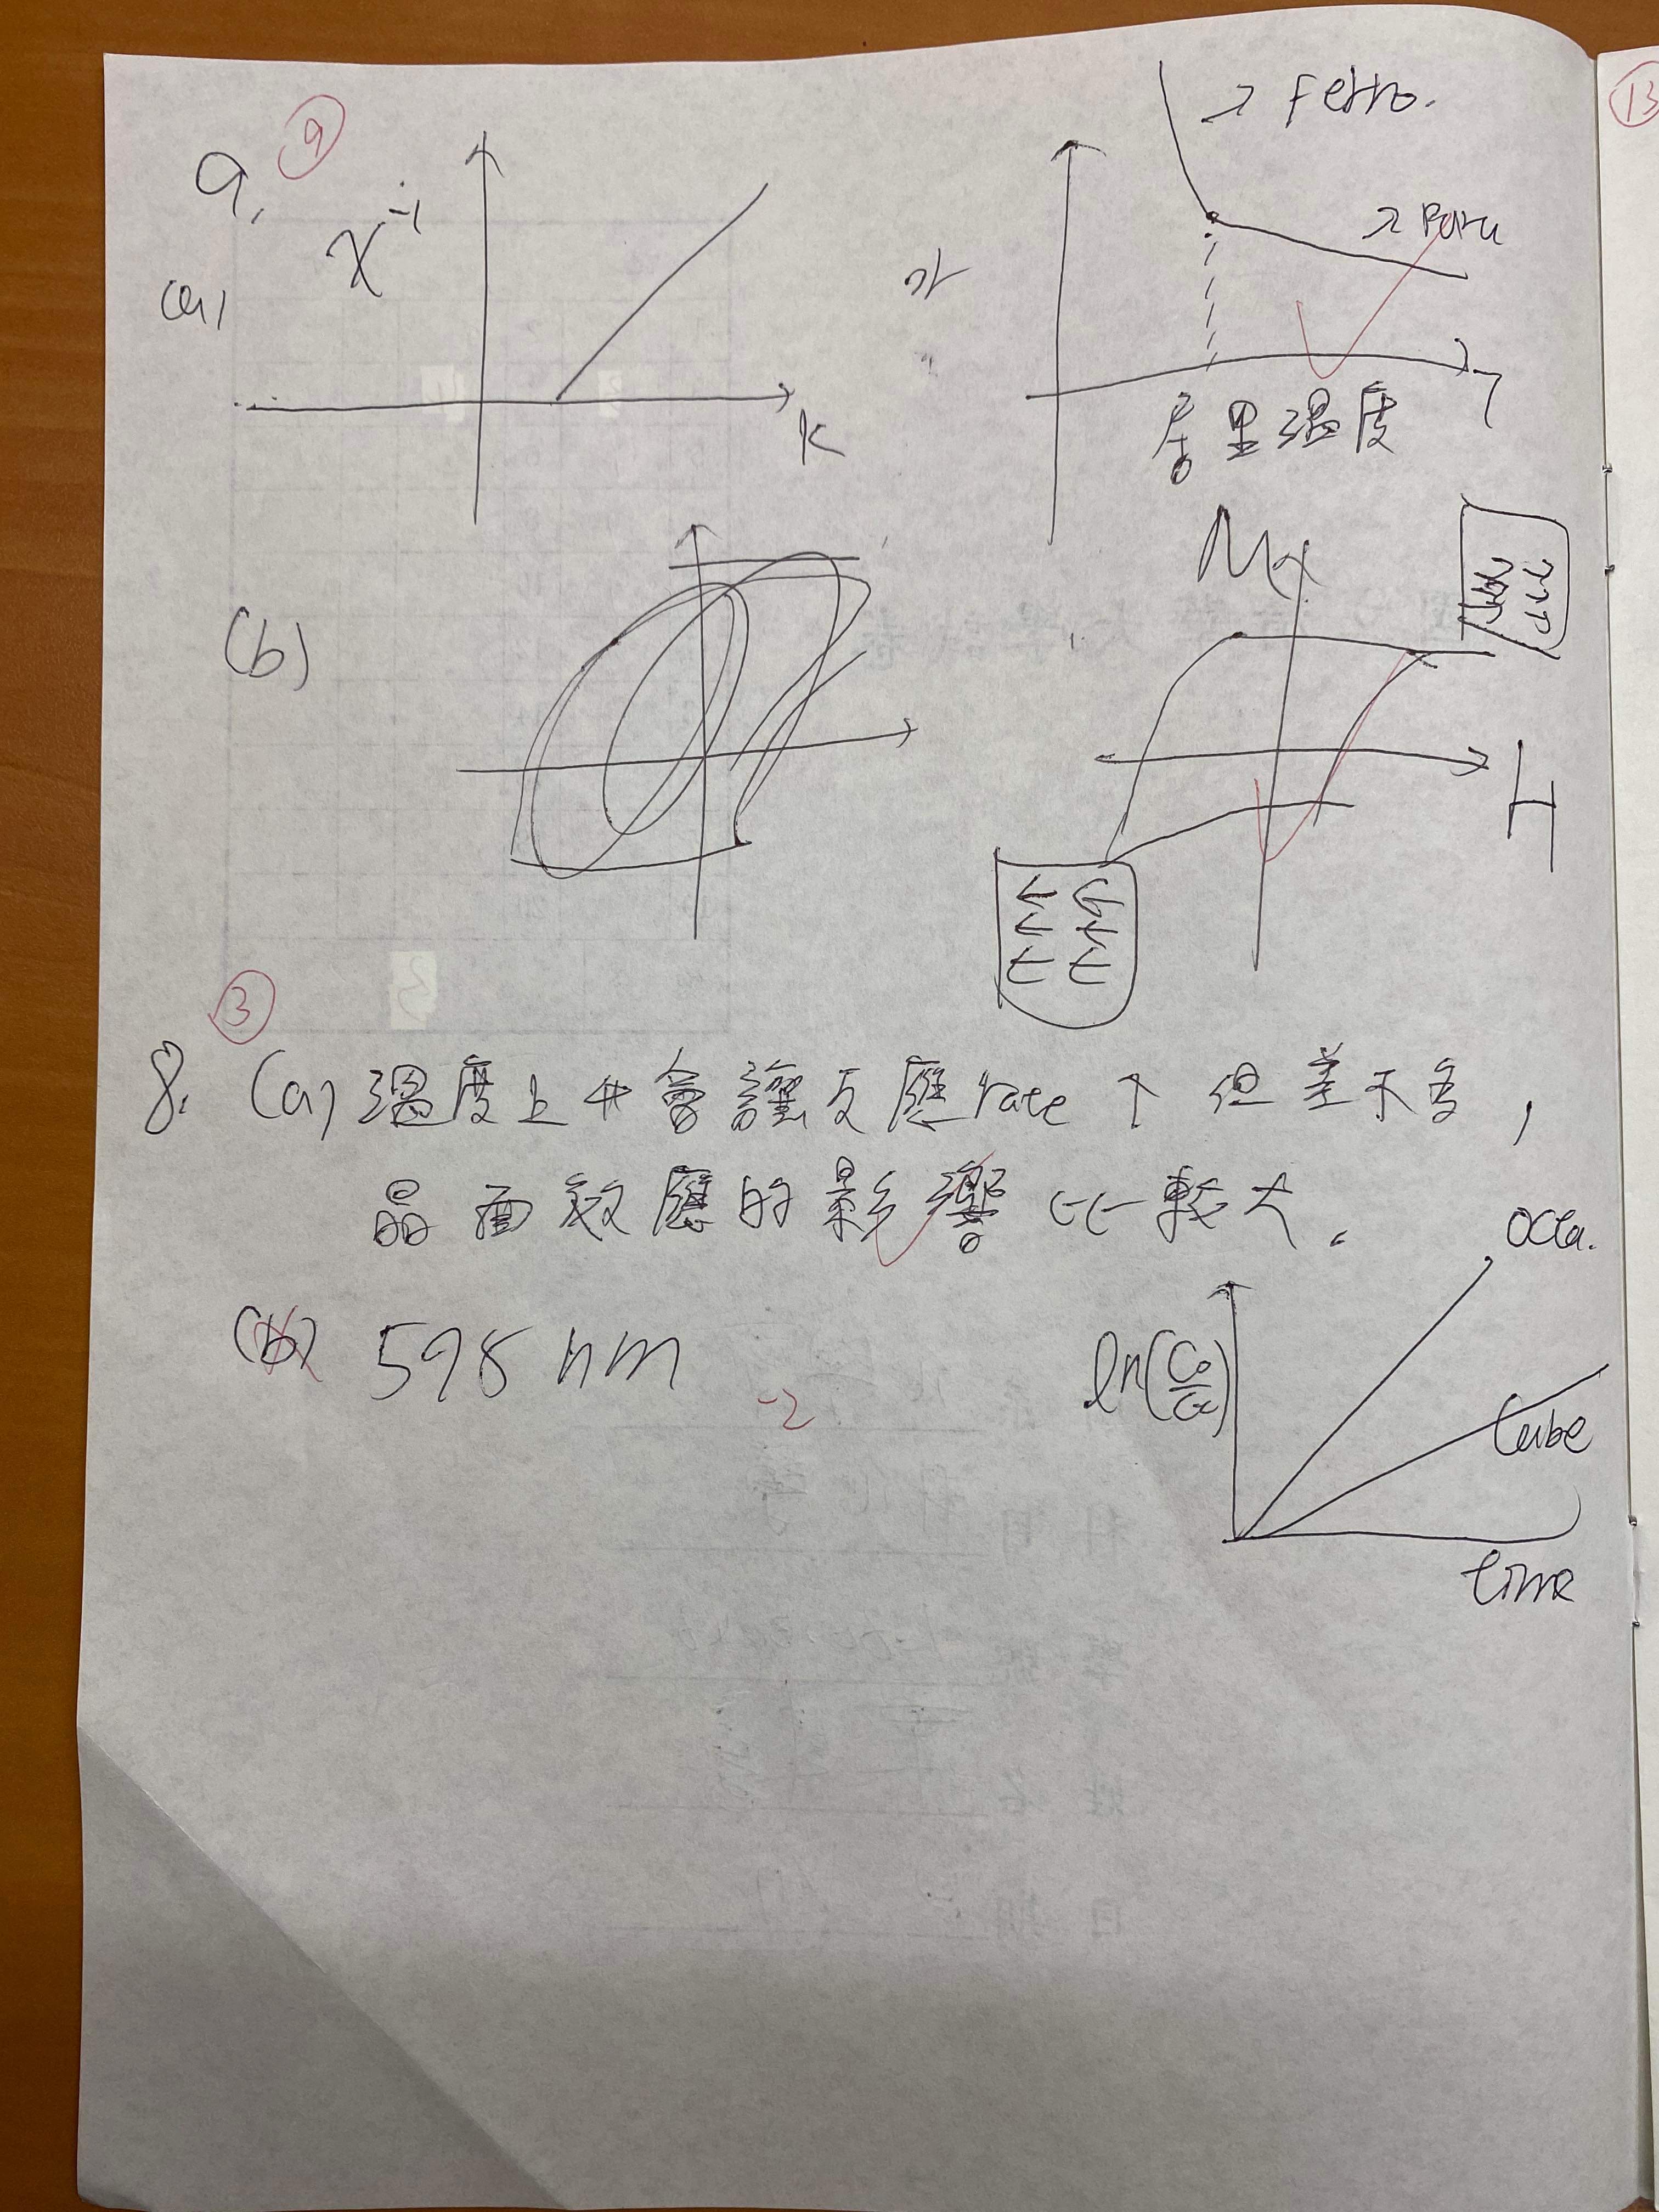 ⑨
9.
(a)
χ⁻¹
K
χ
Ferro.
Para
T
居里溫度
(b)
M
H
③
8. (a) 溫度上升會讓反應rate ↑ 但差不多,
晶面效應的影響比較大.
(b) 598 nm
-2
Octa.
Cube
time
⑬